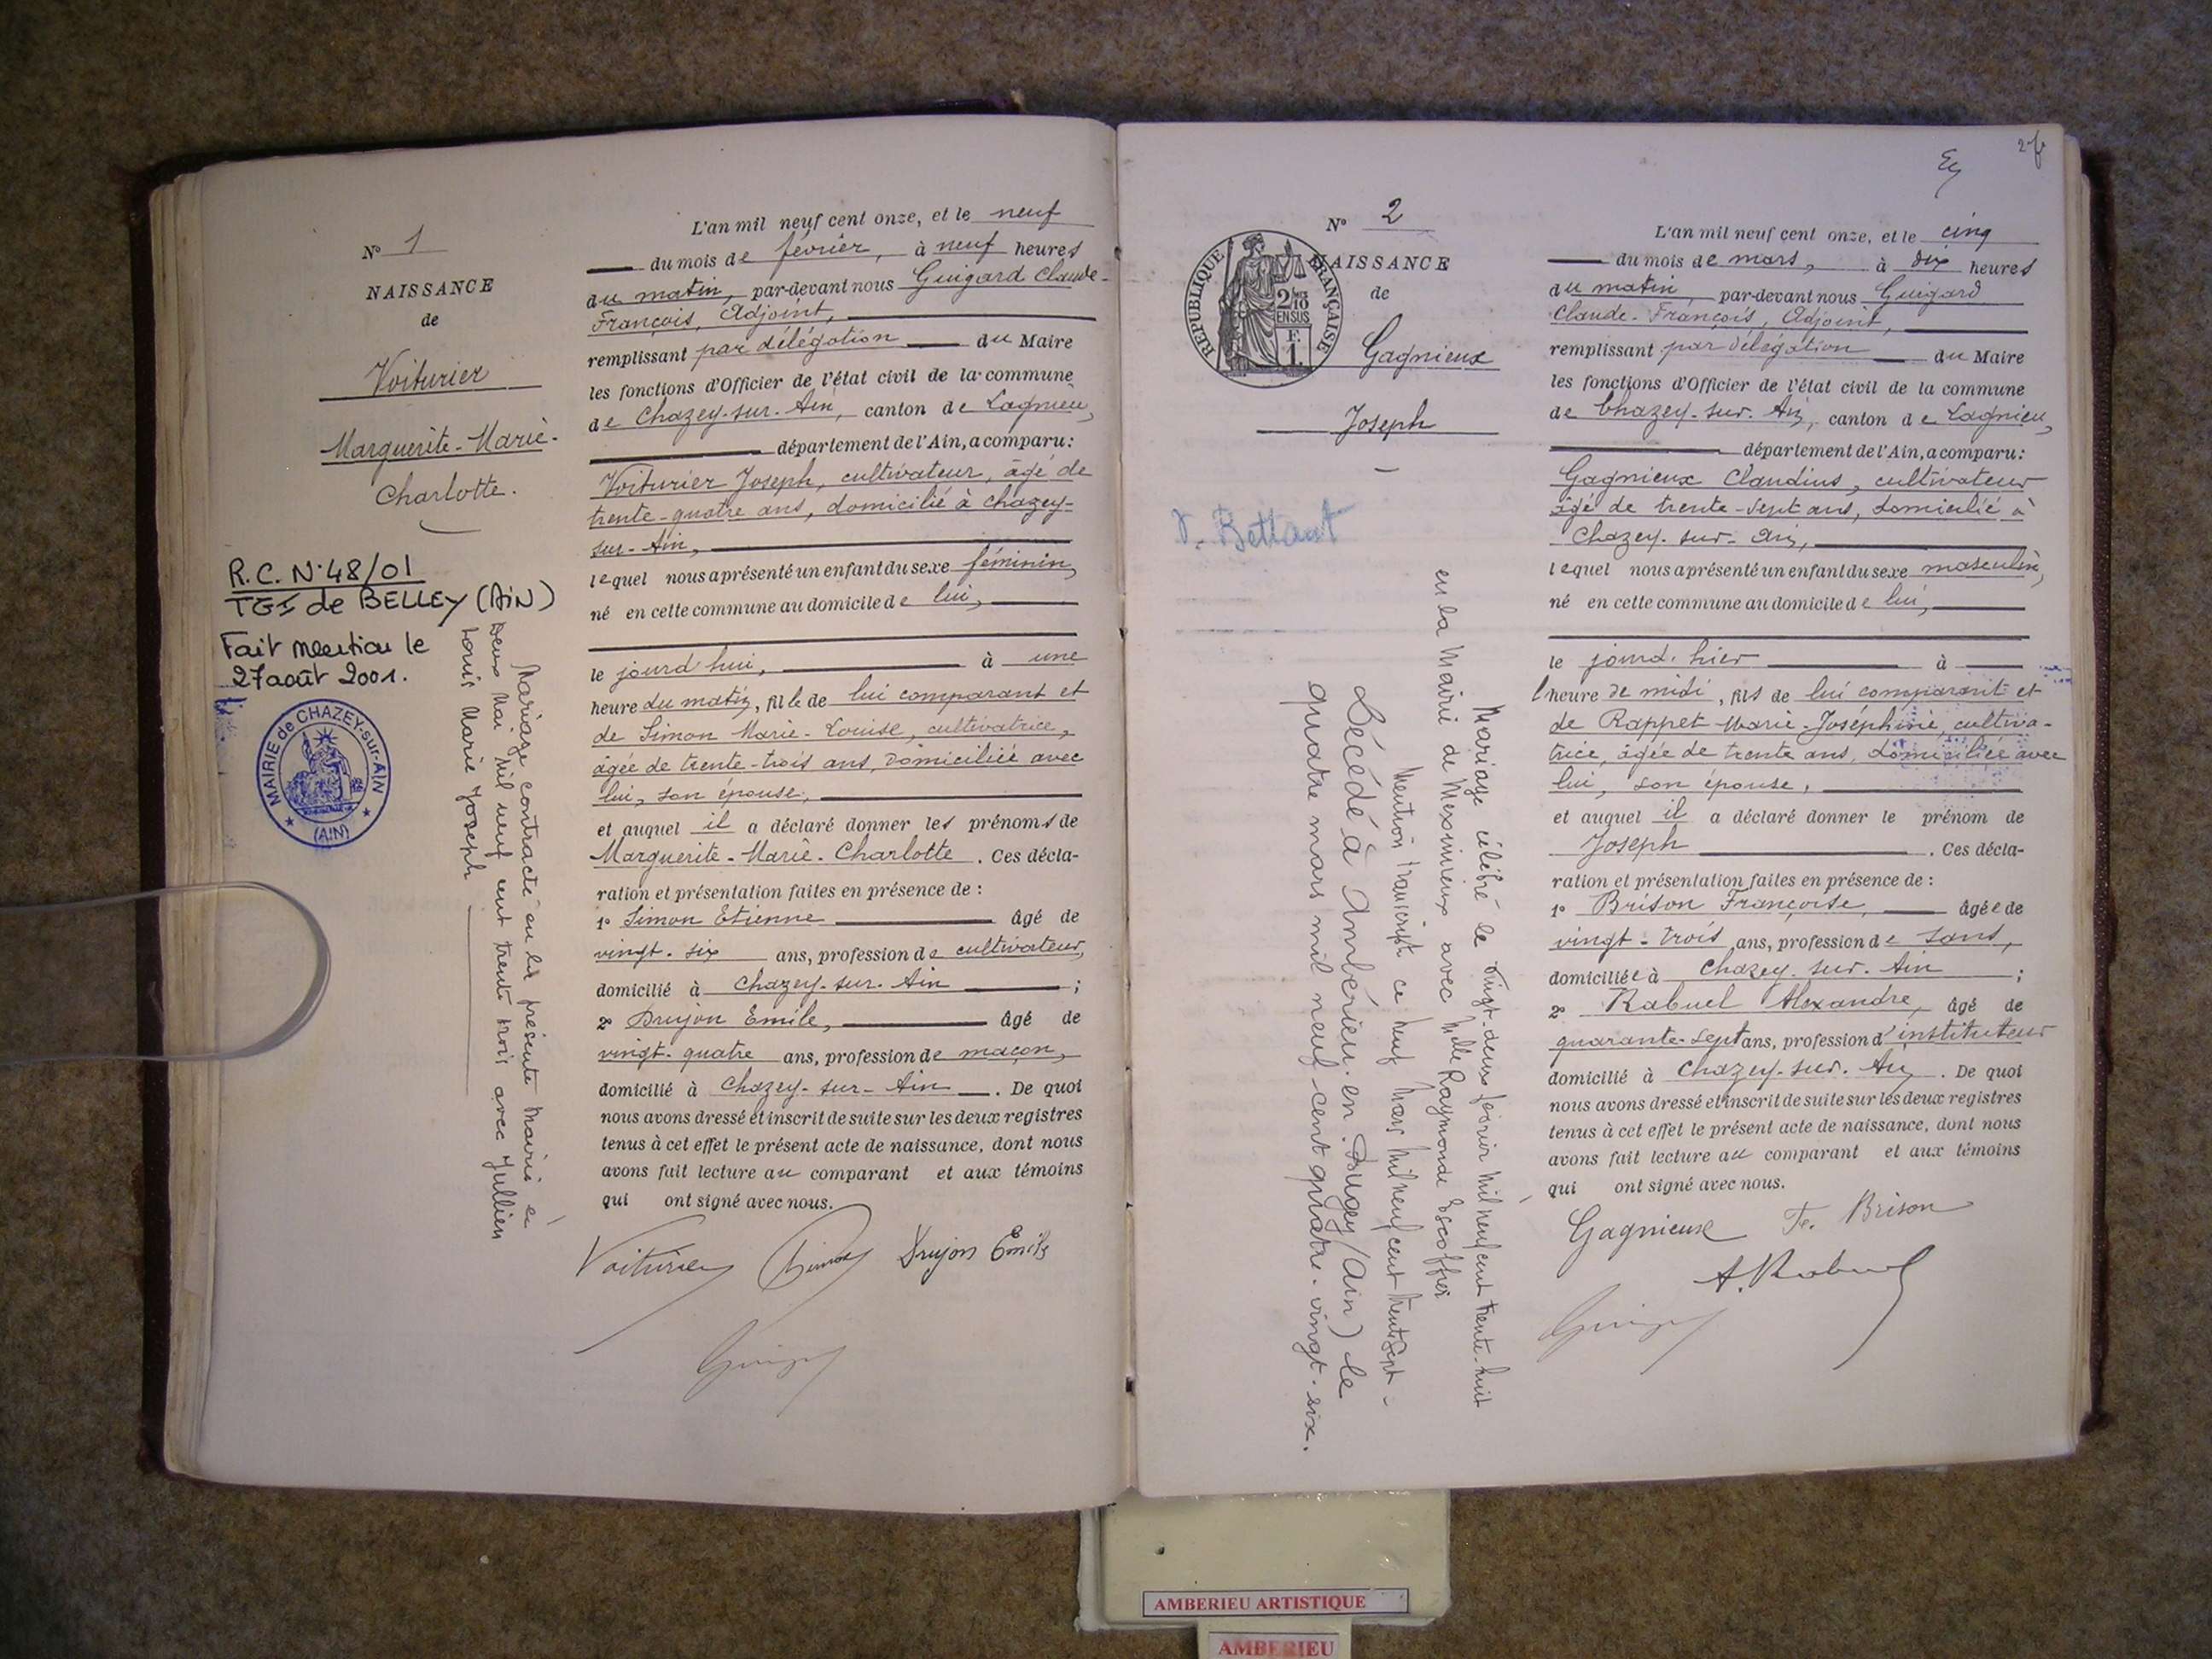 N° 1
NAISSANCE
de
Voiturier
Marguerite-Marie-
Charlotte.
R.C. N°48/01
TGI de BELLEY (AiN)
Fait mention le
27 août 2001.
MAIRIE de CHAZEY-sur-AIN
(AIN)
Mariage contracté en la présente Mairie le
deux Mai Mil neuf cent trente trois avec Jullien
Louis Marie Joseph
L'an mil neuf cent onze, et le neuf
du mois de février, à neuf heures
du matin, par-devant nous Guigard Claude-
François, Adjoint,
remplissant par délégation du Maire
les fonctions d'Officier de l'état civil de la commune
de Chazey-sur-Ain, canton de Lagnieu,
département de l'Ain, a comparu:
Voiturier Joseph, cultivateur, âgé de
trente-quatre ans, domicilié à Chazey-
sur-Ain,
lequel nous a présenté un enfant du sexe féminin,
né en cette commune au domicile de lui,
le jourd'hui, à une
heure du matin, fille de lui comparant et
de Simon Marie-Louise, cultivatrice,
âgée de trente-trois ans, domiciliée avec
lui, son épouse,
et auquel il a déclaré donner les prénoms de
Marguerite-Marie-Charlotte. Ces décla-
ration et présentation faites en présence de :
1° Simon Etienne âgé de
vingt-six ans, profession de cultivateur,
domicilié à Chazey-sur-Ain ;
2° Drujon Emile, âgé de
vingt-quatre ans, profession de maçon,
domicilié à Chazey-sur-Ain. De quoi
nous avons dressé et inscrit de suite sur les deux registres
tenus à cet effet le présent acte de naissance, dont nous
avons fait lecture au comparant et aux témoins
qui ont signé avec nous.
Voiturier Simon Drujon Emile
N° 2
REPUBLIQUE FRANÇAISE
2/10 EN SUS
F. 1
NAISSANCE
de
Gagnieux
Joseph
V. Bettant
Mariage célébré le vingt-deux février mil neuf cent trente-huit
en la Mairie de Meximieux avec Mlle Raymonde Escoffier
Mention transcrite ce neuf Mars mil neuf cent
Décédé à Ambérieu-en-Bugey (Ain) le
quatre mars mil neuf-cent quatre-vingt-six.
2
L'an mil neuf cent onze, et le cinq
du mois de mars, à dix heures
du matin, par-devant nous Guigard
Claude-François, Adjoint,
remplissant par délégation du Maire
les fonctions d'Officier de l'état civil de la commune
de Chazey-sur-Ain, canton de Lagnieu,
département de l'Ain, a comparu:
Gagnieux Claudius, cultivateur
âgé de trente-sept ans, domicilié à
Chazey-sur-Ain,
lequel nous a présenté un enfant du sexe masculin,
né en cette commune au domicile de lui,
le jourd'hier à
l'heure de midi, fils de lui comparant et
de Rappet Marie-Joséphine, cultiva-
trice, âgée de trente ans, domiciliée avec
lui, son épouse,
et auquel il a déclaré donner le prénom de
Joseph. Ces décla-
ration et présentation faites en présence de :
1° Brison Françoise, âgée de
vingt-trois ans, profession de sans,
domiciliée à Chazey-sur-Ain ;
2° Rabuel Alexandre, âgé de
quarante-sept ans, profession d'instituteur
domicilié à Chazey-sur-Ain. De quoi
nous avons dressé et inscrit de suite sur les deux registres
tenus à cet effet le présent acte de naissance, dont nous
avons fait lecture au comparant et aux témoins
qui ont signé avec nous.
Gagnieux F. Brison
A. Rabuel
AMBERIEU ARTISTIQUE
AMBERIEU